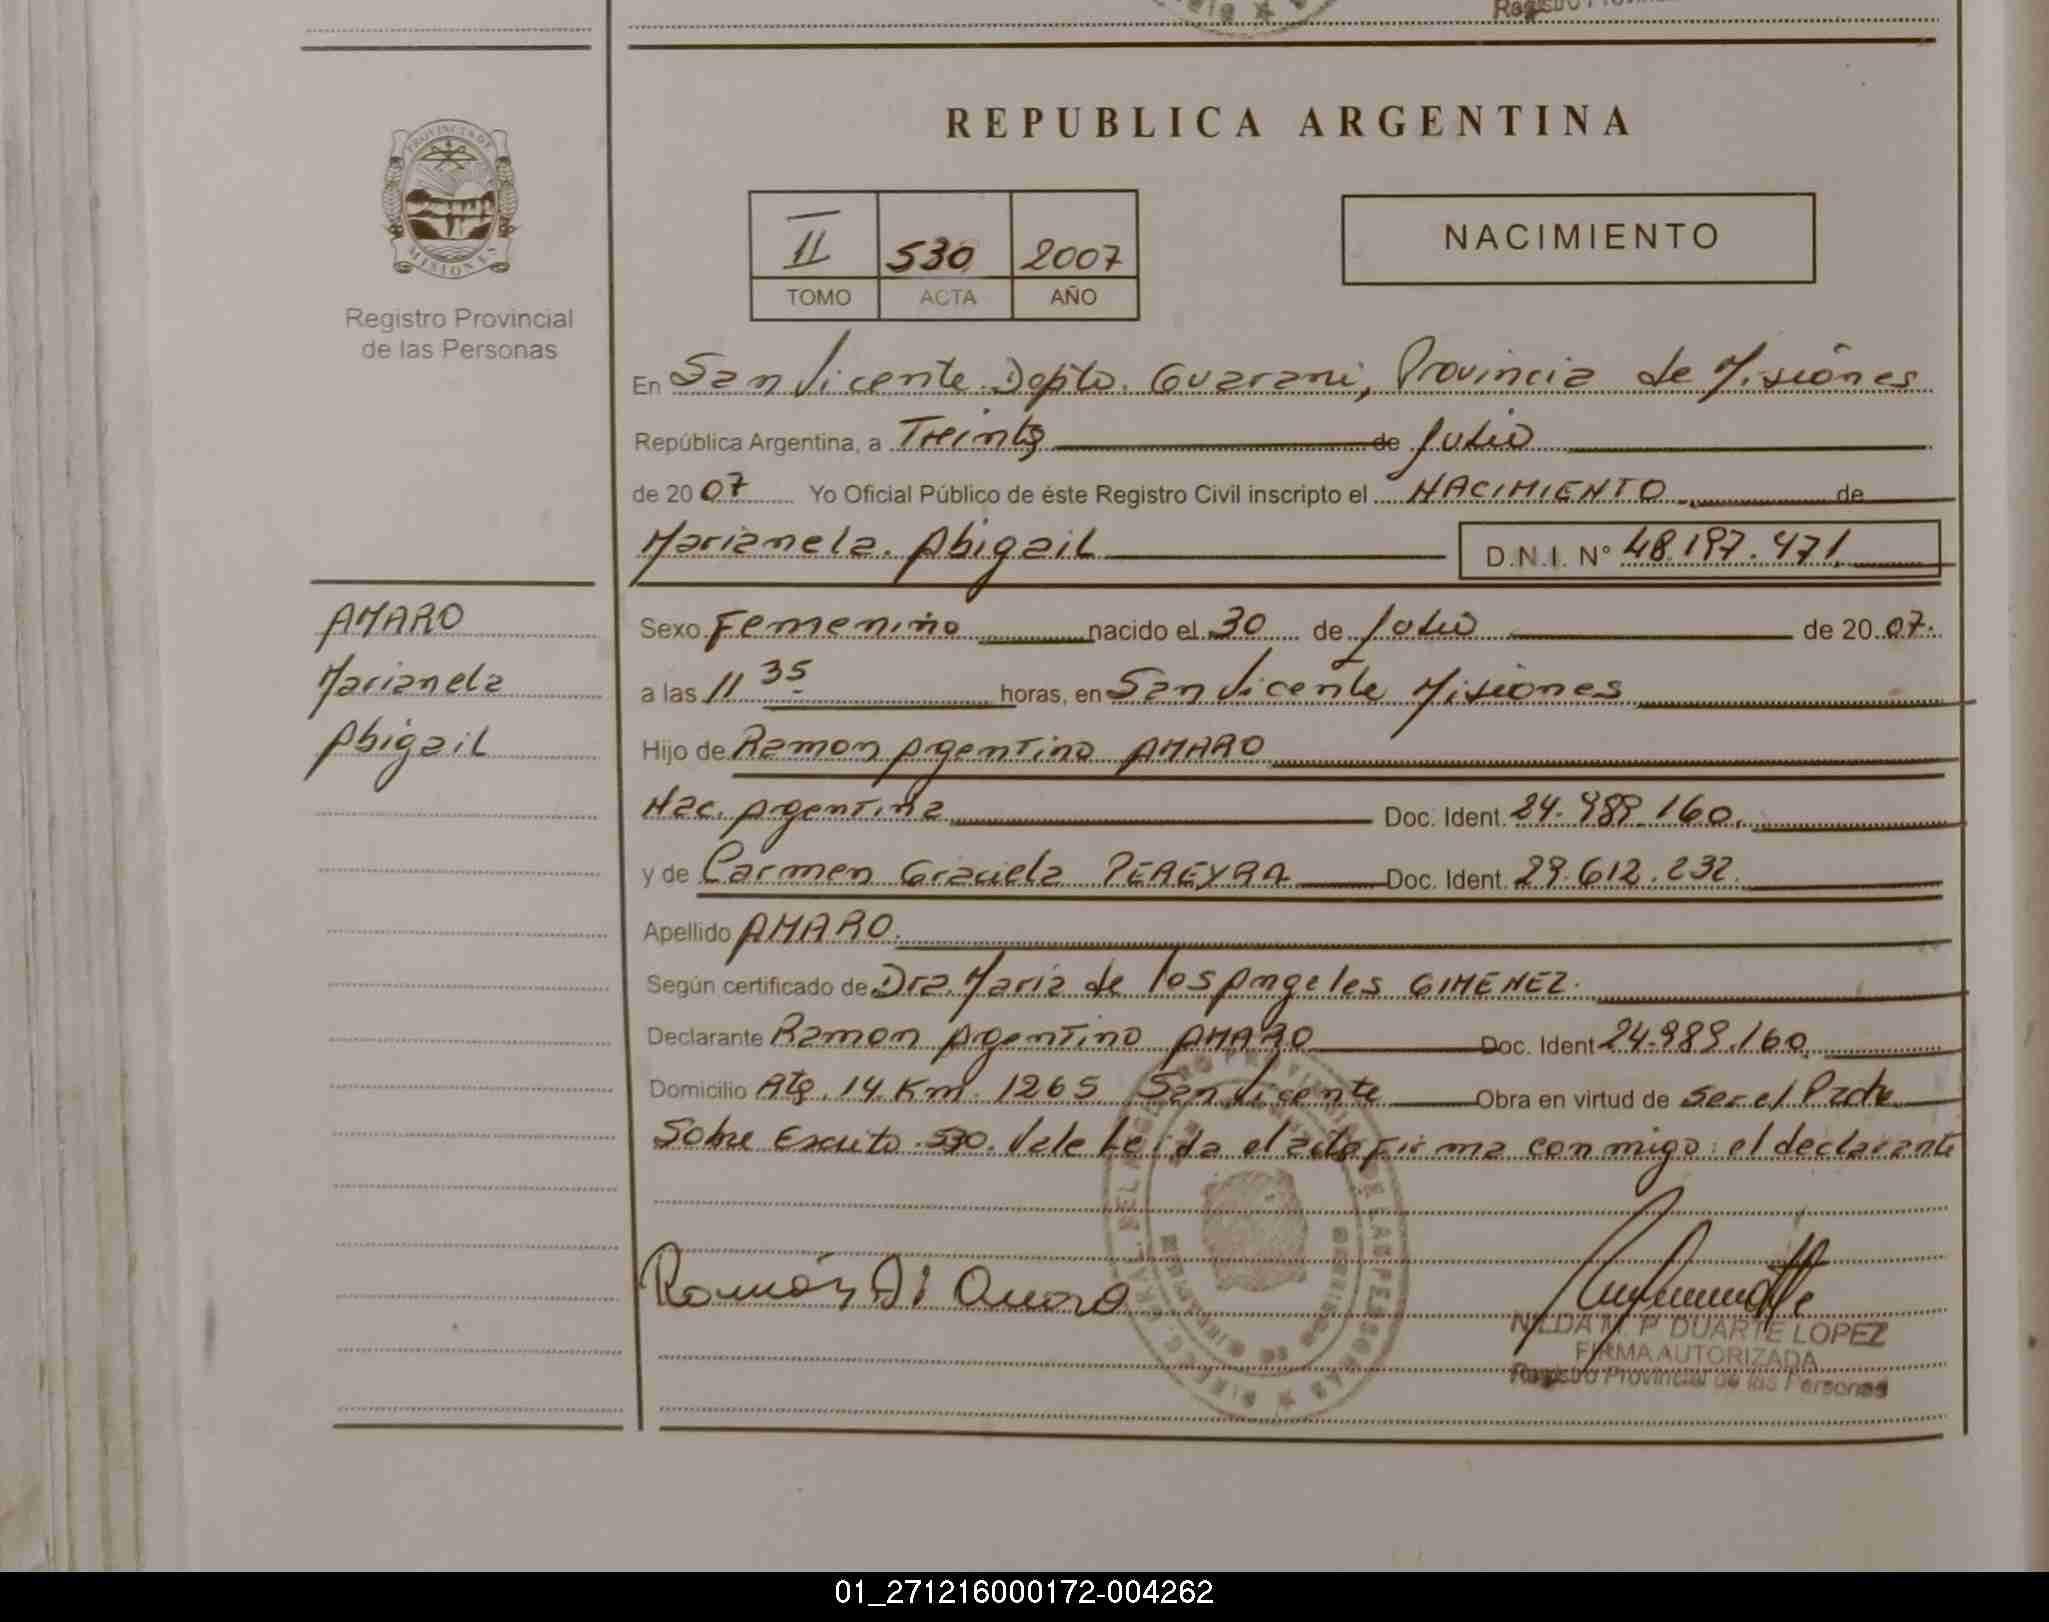 REPUBLICA ARGENTINA
PROVINCIA DE
MISIONES
Registro Provincial
de las Personas
II 530 2007
TOMO ACTA AÑO
NACIMIENTO
En San Vicente Dpto. Guarani, Provincia de Misiones
República Argentina, a Treinta de Julio
de 2007 Yo Oficial Público de éste Registro Civil inscripto el NACIMIENTO de
Marianela Abigail D.N.I. Nº 48.197.471
AMARO
Marianela
Abigail
Sexo Femenino nacido el 30 de Julio de 2007.
a las 11 35 horas, en San Vicente Misiones
Hijo de Ramon Argentino AMARO
Nac. Argentina Doc. Ident. 24.989.160.
y de Carmen Graciela PEREYRA Doc. Ident. 29.612.232.
Apellido AMARO.
Según certificado de Dra. Maria de los Angeles GIMENEZ.
Declarante Ramon Argentino AMARO Doc. Ident 24.989.160.
Domicilio Rta. 14. Km. 1265 San Vicente Obra en virtud de ser el Padre
Sobre Escrito 530. Vale Leida el acta firma conmigo: el declarante
Ramón A Amaro
NILDA M. P. DUARTE LOPEZ
FIRMA AUTORIZADA
Registro Provincial de las Personas
01_271216000172-004262